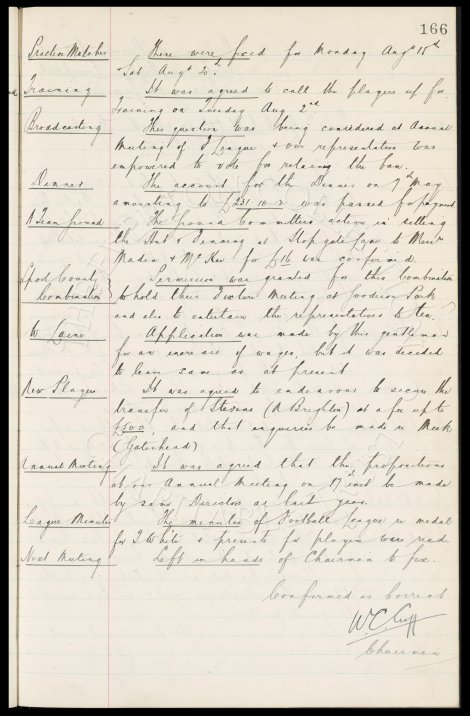 166
Practice Matches These were fixed for Monday Augt 15th
& Sat Augt 20th
Training It was agreed to call the players up for
Training on Tuesday Aug 2nd
Broadcasting This question was being considered at Annual
Meeting of F League & our representative was
empowered to vote for retaining the ban.
Dinner The account for the Dinner on 7th May
amounting to £231-10-2 was passed for payment
A Team Ground The Ground Committees action in letting
the & Tenancy at Stopgate Lane to Messrs
Maden & McKee for £16 was confirmed.
Lpool County Permission was granted for this Combination
Combination to hold their Fixture Meeting at Goodison Park
and also to entertain the representatives to tea.
W Laine Application was made by this gentleman
for an increase of wages, but it was decided
to leave same as at present
New Players It was agreed to endeavour to secure the
transfer of Stevens (N Brighton) at a fee up to
£500 and that enquiries be made re Meek
(Gateshead)
Annual Meeting It was agreed that the propositions
at our Annual Meeting on 17 inst be made
by same Directors as last year.
League Minutes The minutes of Football League re medal
for T White & presents for players were read.
Next Meeting Left in hands of Chairman to fix.
Confirmed as Correct
W.C. Cuff
Chairman